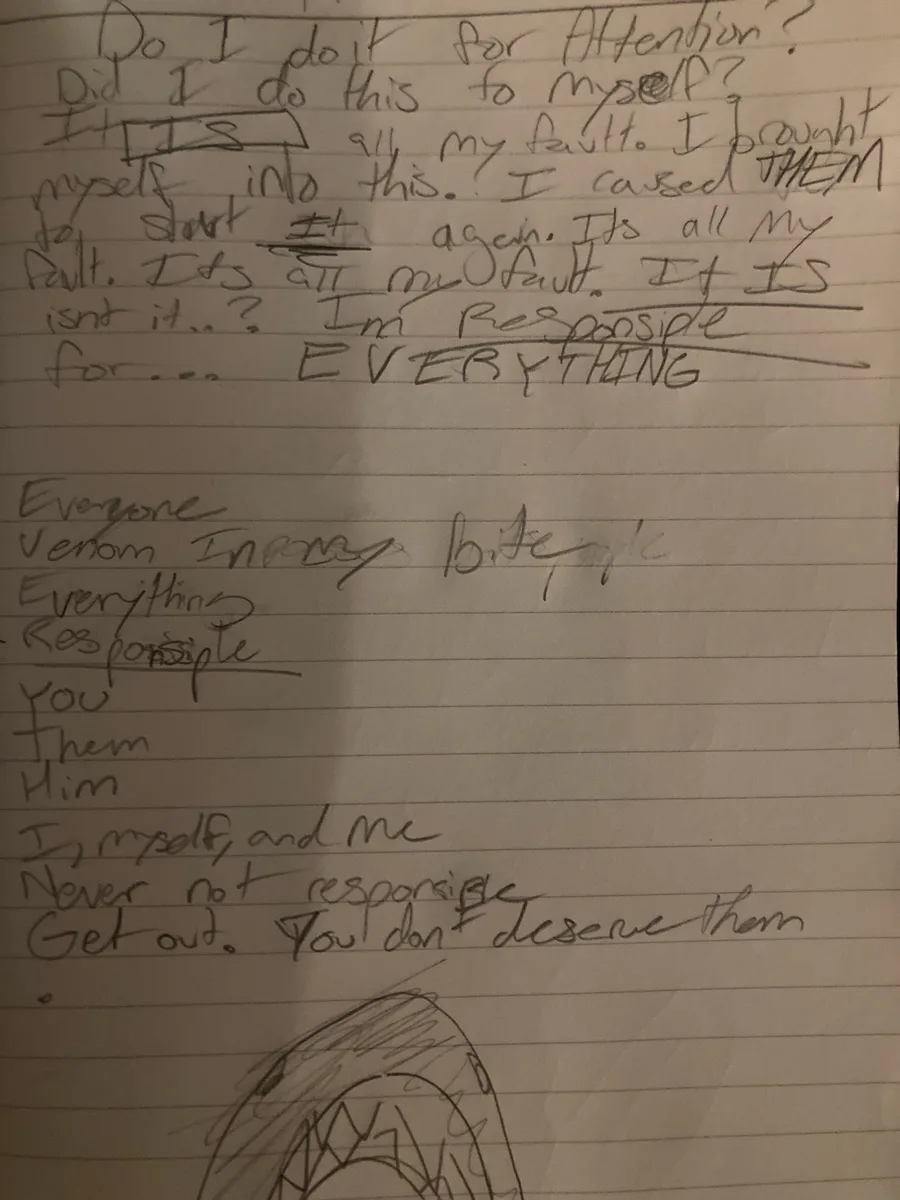 Do I do it for Attention?
Did I do this to myself?
It IS all my fault. I brought
myself into this. I caused THEM
to start It again. Its all my
fault. Its all my fault. It IS
isnt it..? Im Responsiple
for.... EVERYTHING
Everyone
Venom bite
Everything
Responsiple
You
Them
Him
I, myself, and me
Never not responsible
Get out. You don't deserve them
.